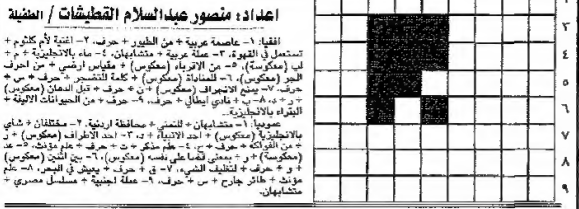 اعداد: منصور عبدالسلام القطيشات / الطفيلة
افقيا: ١- عاصمة عربية + من الطيور + حرف. ٢- اغنية لأم كلثوم +
تستعمل في القهوة. ٣- عملة عربية + متشابهان. ٤- ماء بالانجليزية + م +
لب (معكوسة). ٥- من الاقرباء (معكوس) + مقياس ارضي + من احرف
الجر (معكوس). ٦- للمناداة (معكوس) + كلمة للتضجر + حرف + س +
حرف. ٧- يمنع الانجراف (معكوس) + ن + حرف + قبل الدهان (معكوس)
+ ر + د. ٨- ب + نادي ايطالي + حرف. ٩- حرف + من الحيوانات الاليفة +
البتراء بالانجليزية.
عموديا: ١- متشابهان + للتمني + محافظة اردنية. ٢- مختلفان + شاي
بالانجليزية (معكوس) + احد الانبياء + د. ٣- احد الاطراف (معكوس) + ر
+ من الفواكه + حرف + ح. ٤- علم مذكر + ت + حرف + علم مؤنث. ٥- عد
(معكوسة) + ر + بمعنى قضا على نفسه (معكوس). ٦- بين اثنين (معكوس)
+ و + حرف + لتغليف الشيء. ٧- ق + حرف + يعيش في البحر. ٨- علم
مؤنث + طائر جارح + س + حرف. ٩- عملة اجنبية + مسلسل مصري +
متشابهان.
١
٢
٣
٤
٥
٦
٧
٨
٩